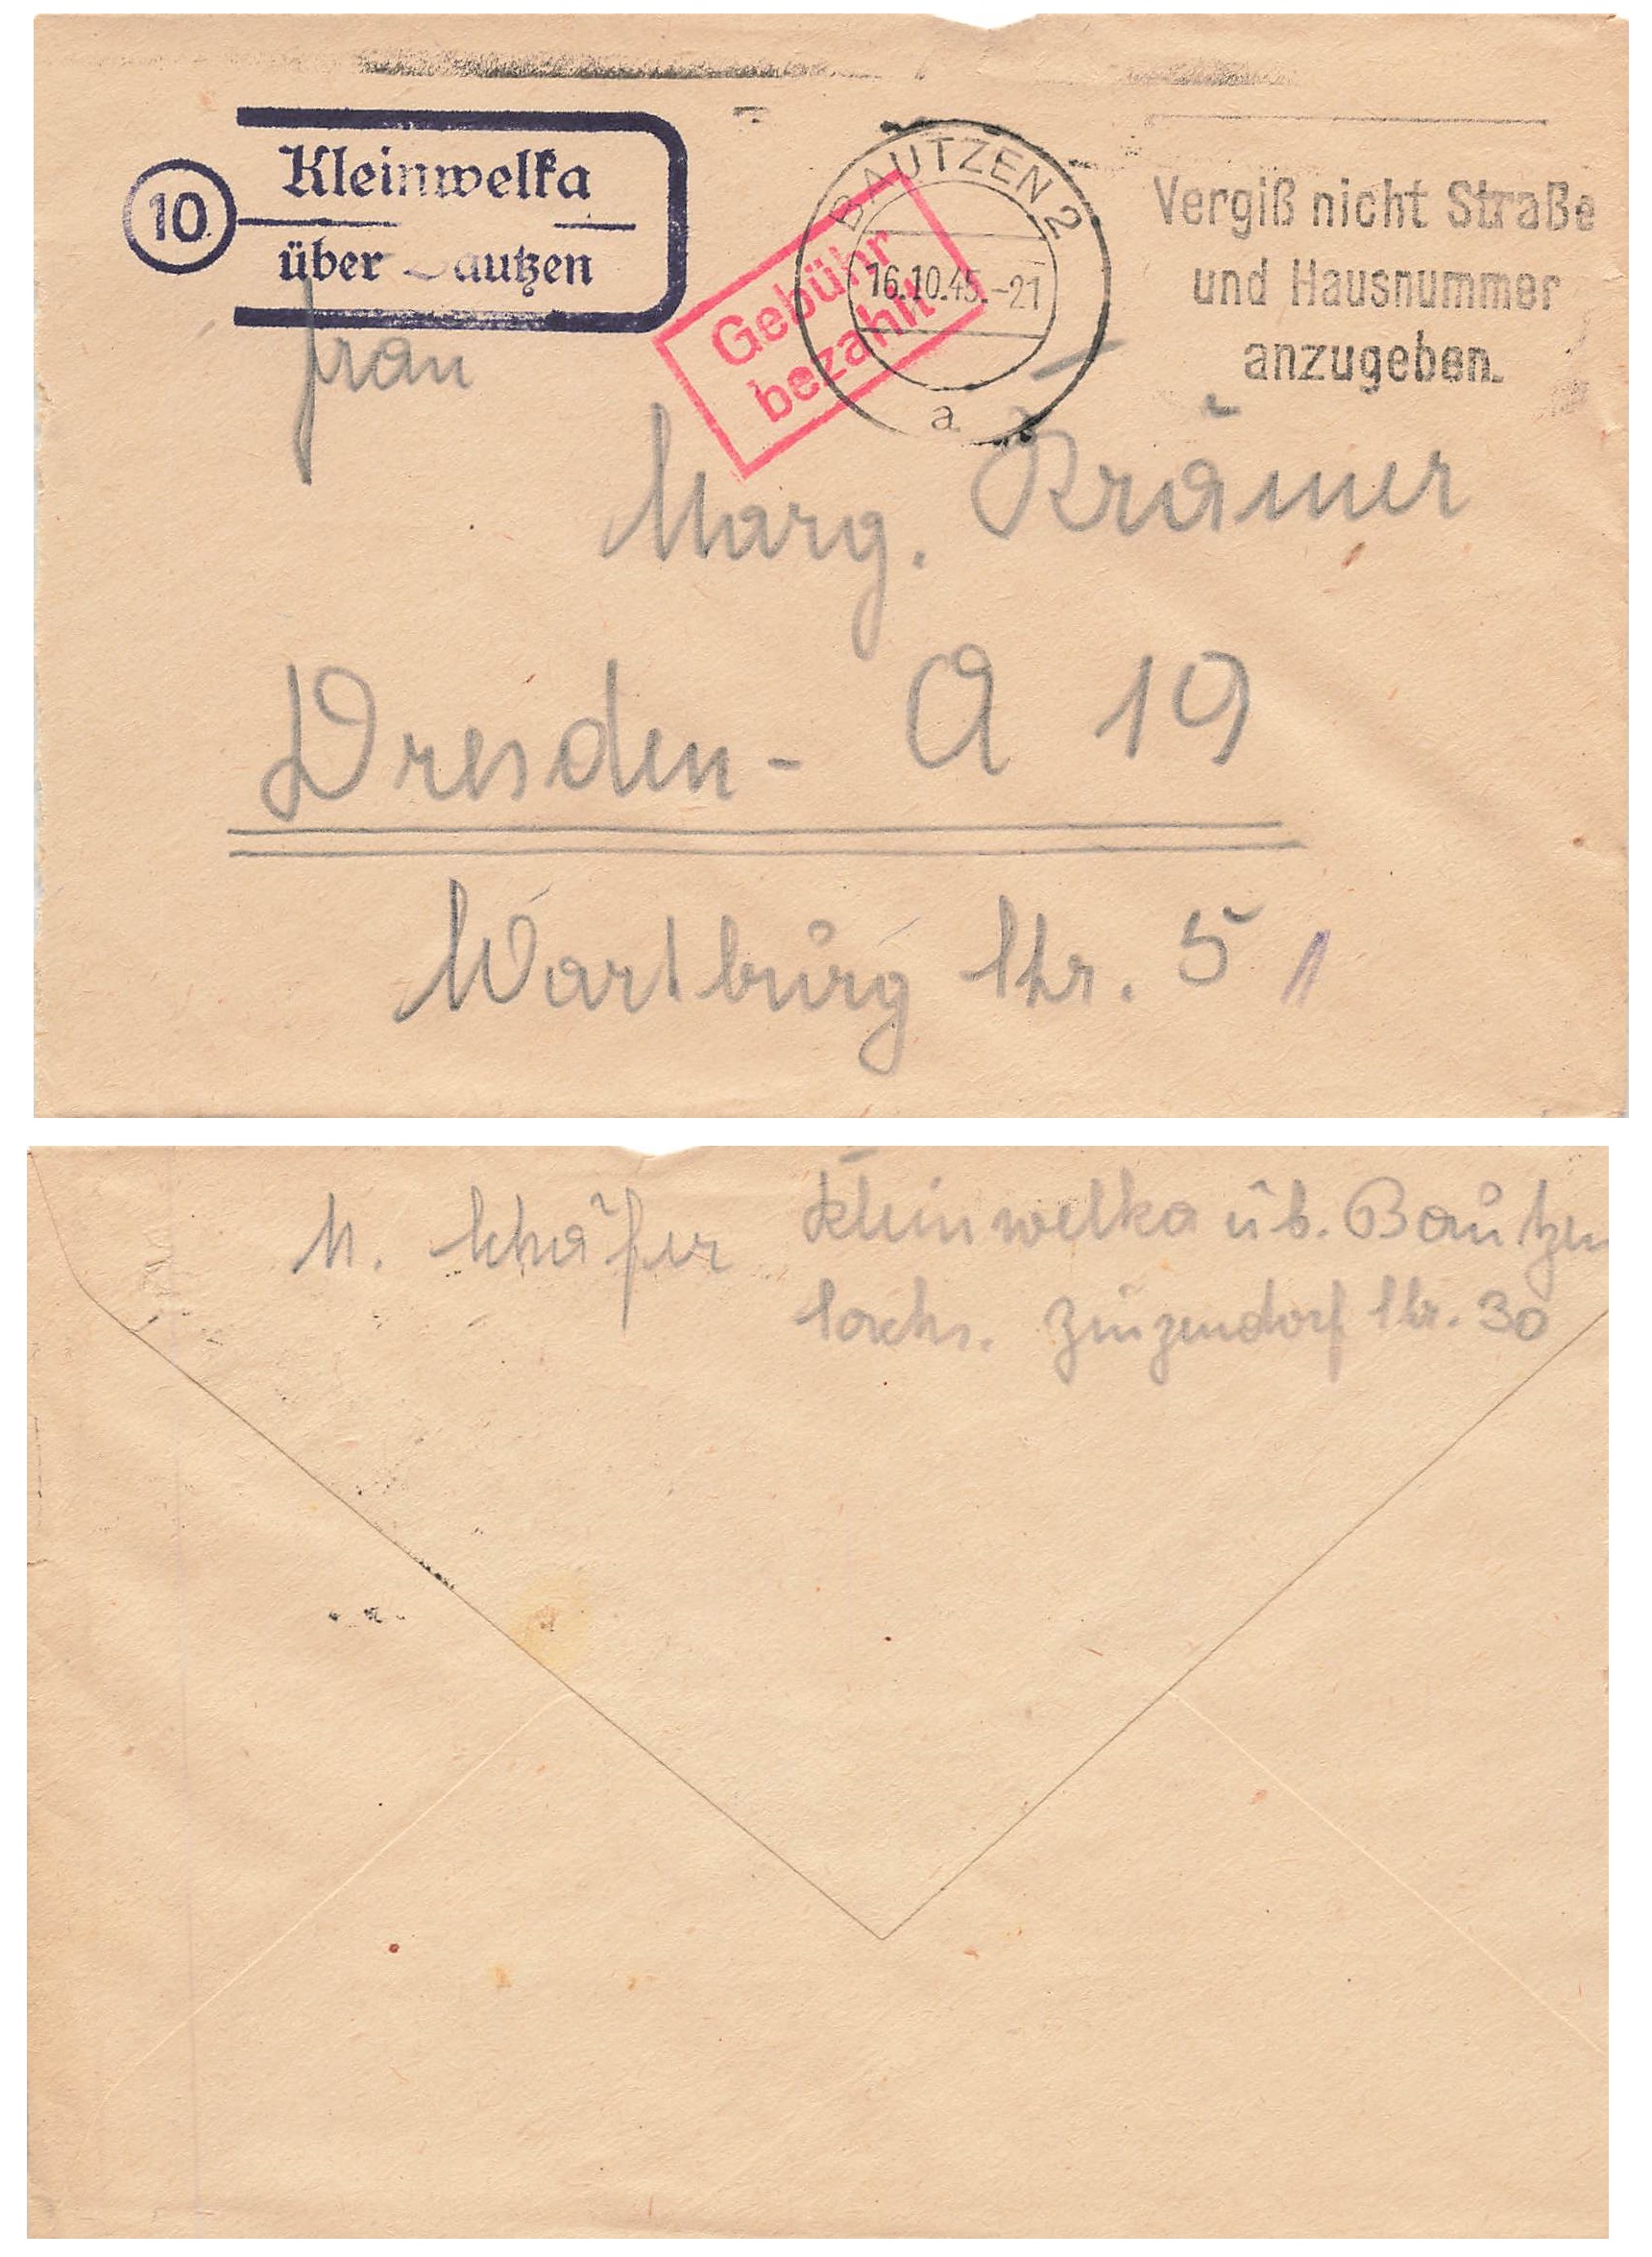 10
Kleinwelka
über Bautzen
Gebühr
bezahlt
BAUTZEN 2
16.10.45.-21
a
Vergiß nicht Straße
und Hausnummer
anzugeben.
Frau
Marg. Krämer
Dresden - A 19
Wartburg Str. 51
M. Schäfer
Kleinwelka üb. Bautzen
Sachs. Zinzendorf Str. 30